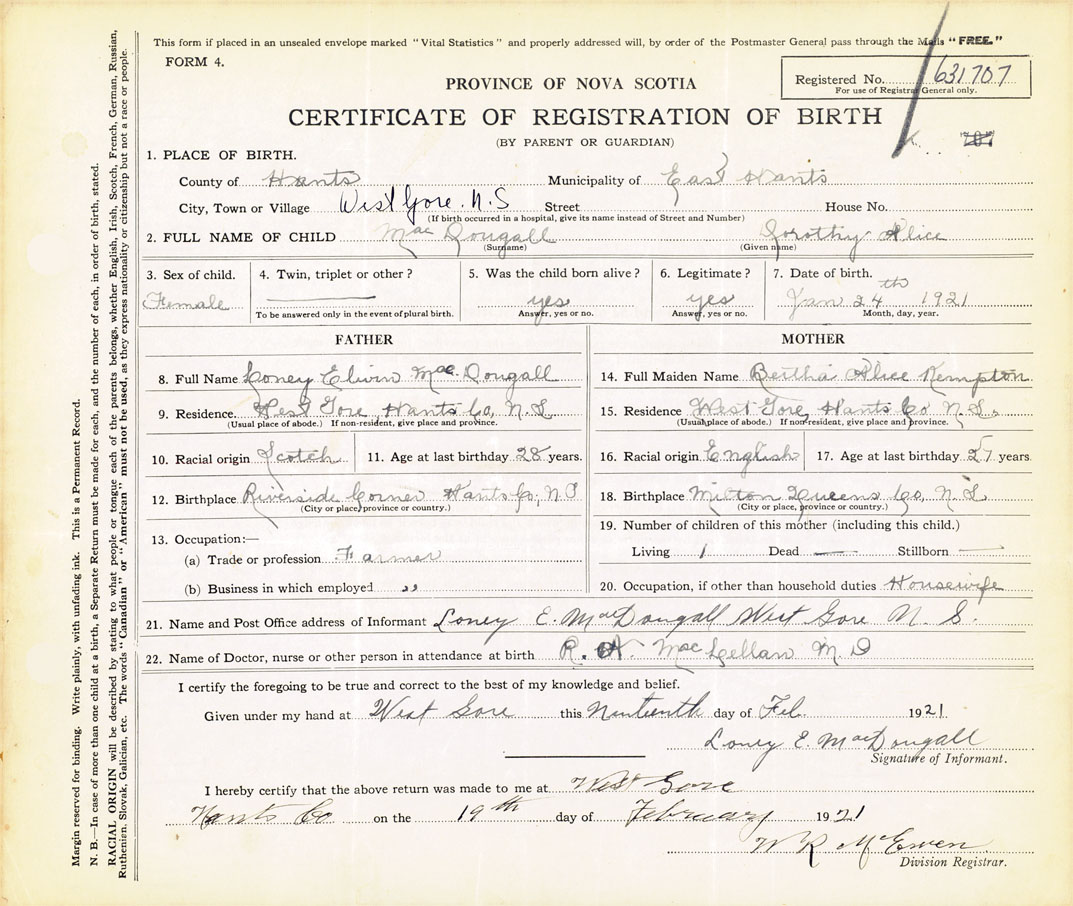 This form if placed in an unsealed envelope marked "Vital Statistics" and properly addressed will, by order of the Postmaster General pass through the Mails "FREE."
FORM 4.
Registered No. 631707
For use of Registrar General only.
PROVINCE OF NOVA SCOTIA
CERTIFICATE OF REGISTRATION OF BIRTH
(BY PARENT OR GUARDIAN)
707
1. PLACE OF BIRTH.
County of Hants Municipality of East Hants
City, Town or Village West Gore. N.S Street House No.
(If birth occurred in a hospital, give its name instead of Street and Number)
2. FULL NAME OF CHILD Mac Dougall Dorothy Alice
(Surname) (Given name)
3. Sex of child. 4. Twin, triplet or other? 5. Was the child born alive? 6. Legitimate? 7. Date of birth.
Female yes yes Jan 24th 1921
To be answered only in the event of plural birth. Answer, yes or no. Answer, yes or no. Month, day, year.
FATHER
8. Full Name Loney Elwin MacDougall
9. Residence. West Gore, Hants Co, N.S.
(Usual place of abode.) If non-resident, give place and province.
10. Racial origin Scotch 11. Age at last birthday 28 years.
12. Birthplace Riverside Corner Hants Co, N.S
(City or place, province or country.)
13. Occupation:—
(a) Trade or profession Farmer
(b) Business in which employed "
MOTHER
14. Full Maiden Name Bertha Alice Kempton
15. Residence West Gore, Hants Co N.S.
(Usual place of abode.) If non-resident, give place and province.
16. Racial origin English 17. Age at last birthday 27 years.
18. Birthplace Milton Queens Co, N.S.
(City or place, province or country.)
19. Number of children of this mother (including this child.)
Living 1 Dead — Stillborn —
20. Occupation, if other than household duties Housewife
21. Name and Post Office address of Informant Loney E. MacDougall West Gore N. S.
22. Name of Doctor, nurse or other person in attendance at birth R. A. MacLellan M. D
I certify the foregoing to be true and correct to the best of my knowledge and belief.
Given under my hand at West Gore this Ninteenth day of Feb. 1921
Loney E. MacDougall
Signature of Informant.
I hereby certify that the above return was made to me at West Gore
Hants Co on the 19th day of February 1921
W R McEwen
Division Registrar.
Margin reserved for binding. Write plainly, with unfading ink. This is a Permanent Record.
N. B.—In case of more than one child at a birth, a Separate Return must be made for each, and the number of each, in order of birth, stated.
RACIAL ORIGIN will be described by stating to what people or tongue each of the parents belongs, whether English, Irish, Scotch, French, German, Russian,
Ruthenien, Slovak, Galician, etc. The words "Canadian" or "American" must not be used, as they express nationality or citizenship but not a race or people.